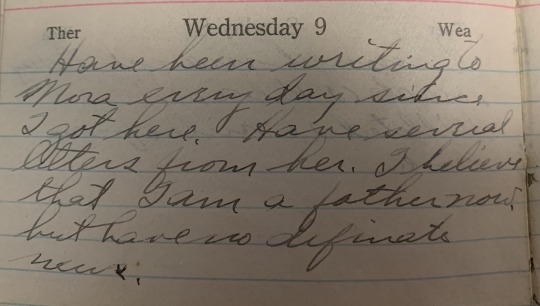 Ther Wednesday 9 Wea
Have been writing to
Mora every day since
I got here. Have several
letters from her. I believe
that I am a father now,
but have no definate
news.